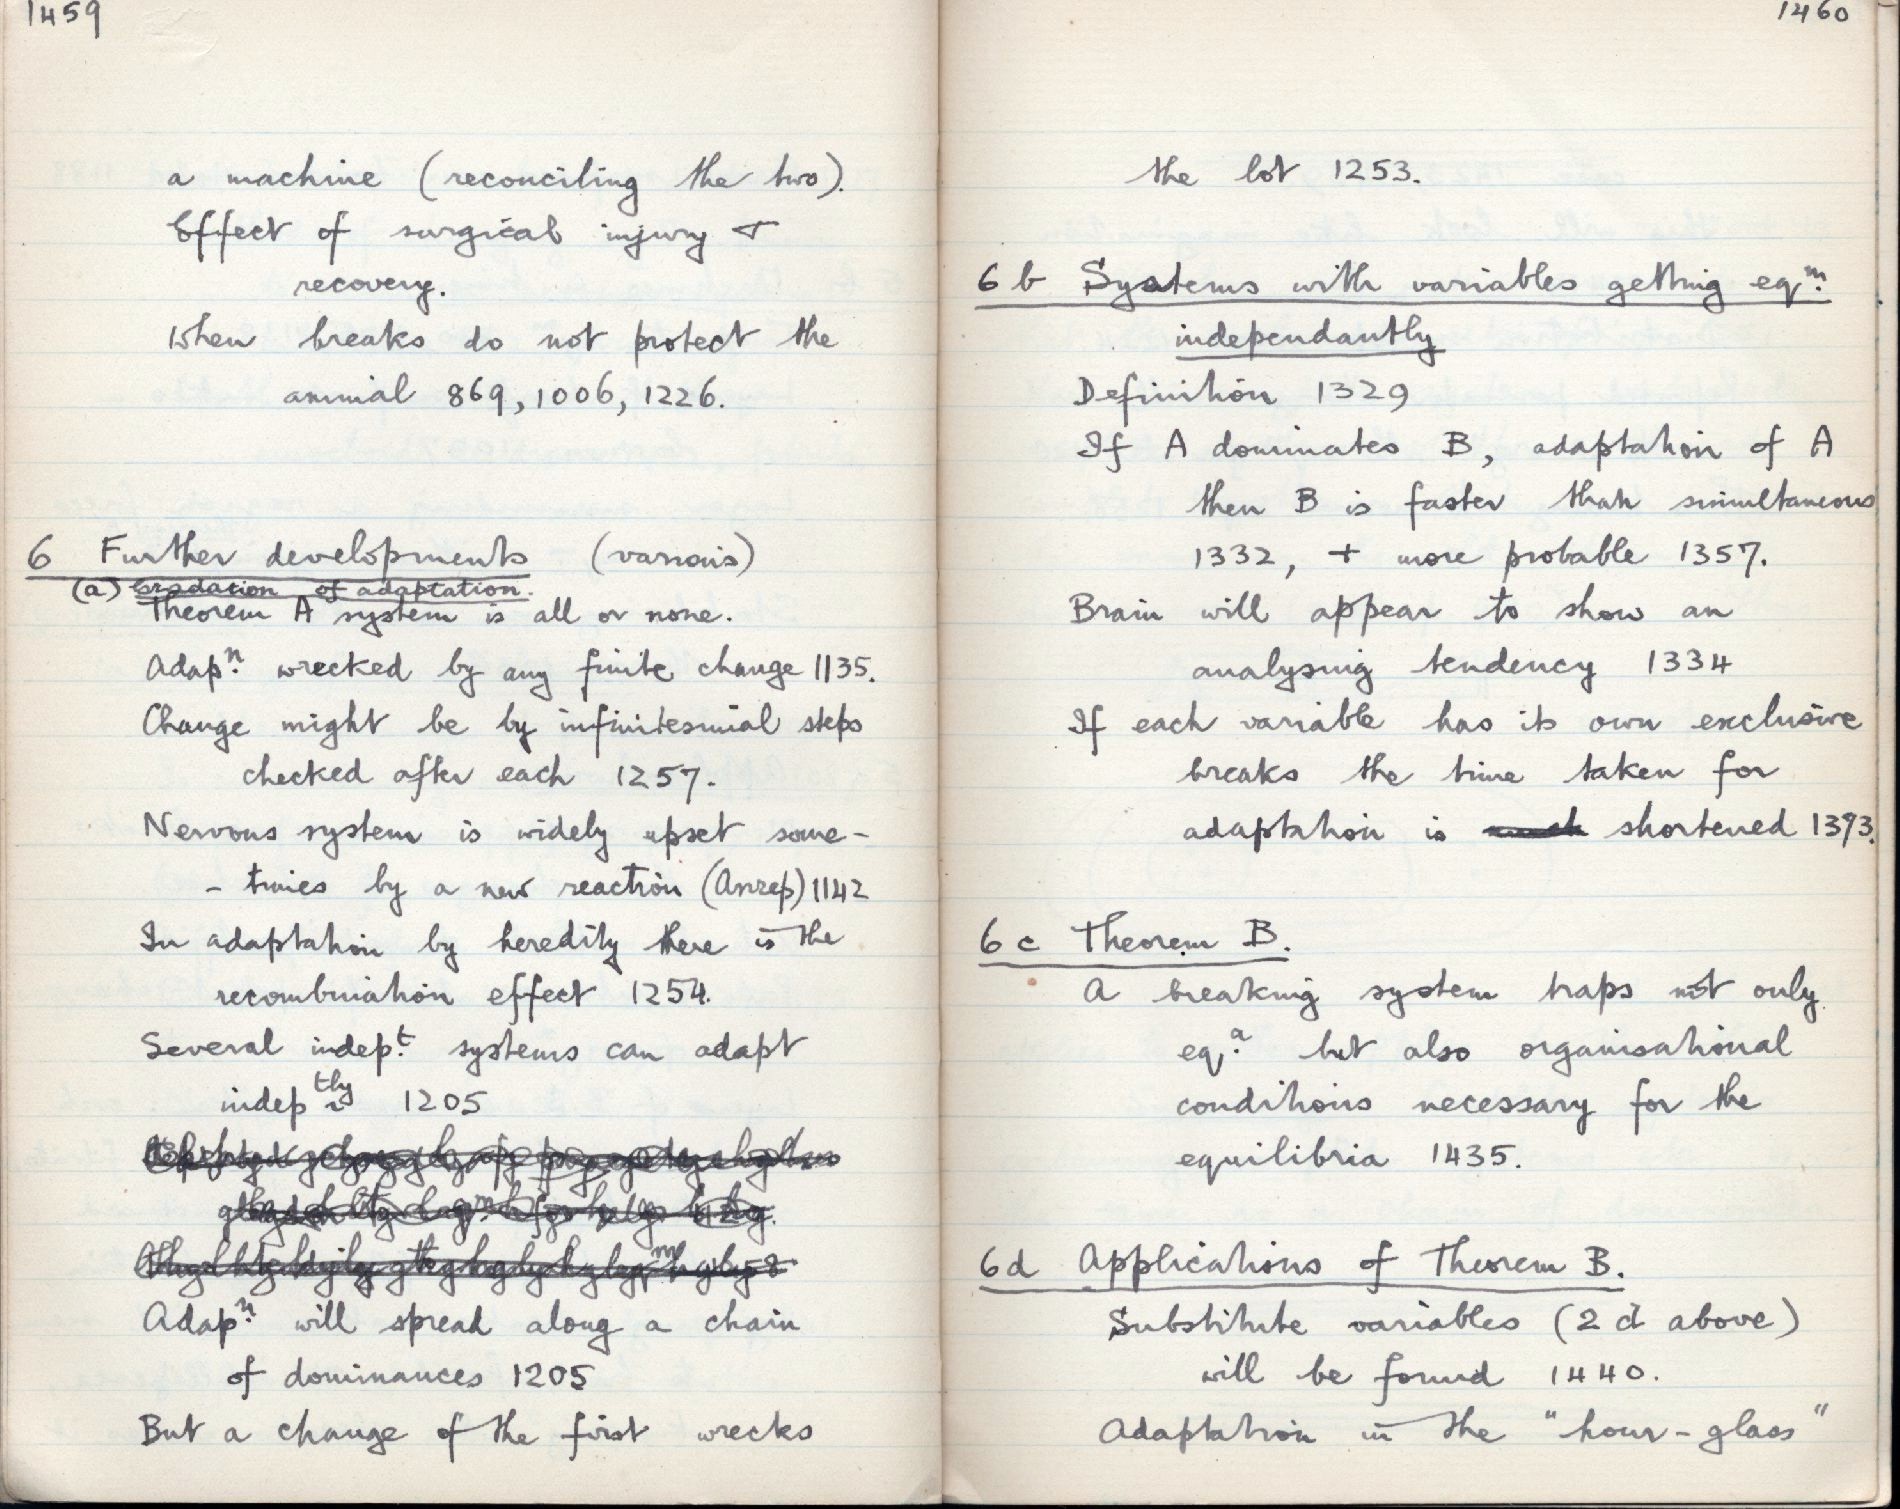 1459
a machine (reconciling the two).
Effect of surgical injury +
recovery.
When breaks do not protect the
animal 869, 1006, 1226.
6 Further developments (various)
(a) Gradation of adaptation.
Theorem A system is all or none.
Adapⁿ. wrecked by any finite change 1135.
Change might be by infinitesimal steps
checked after each 1257.
Nervous system is widely upset some-
- times by a new reaction (Anrep) 1142
In adaptation by heredity there is the
recombination effect 1254.
Several indep.ᵗ systems can adapt
indepᵗˡʸ 1205
Adapⁿ. will spread along a chain
of dominances 1205
But a change of the first wrecks
1460
the lot 1253.
6 b Systems with variables getting eqᵐ.
independantly
Definition 1329
If A dominates B, adaptation of A
then B is faster than simultaneous
1332, + more probable 1357.
Brain will appear to show an
analysing tendency 1334
If each variable has its own exclusive
breaks the time taken for
adaptation is shortened 1393.
6 c Theorem B.
A breaking system traps not only
eqᵃ. but also organisational
conditions necessary for the
equilibria 1435.
6d Applications of Theorem B.
Substitute variables (2 d above)
will be found 1440.
Adaptation in the "hour-glass"